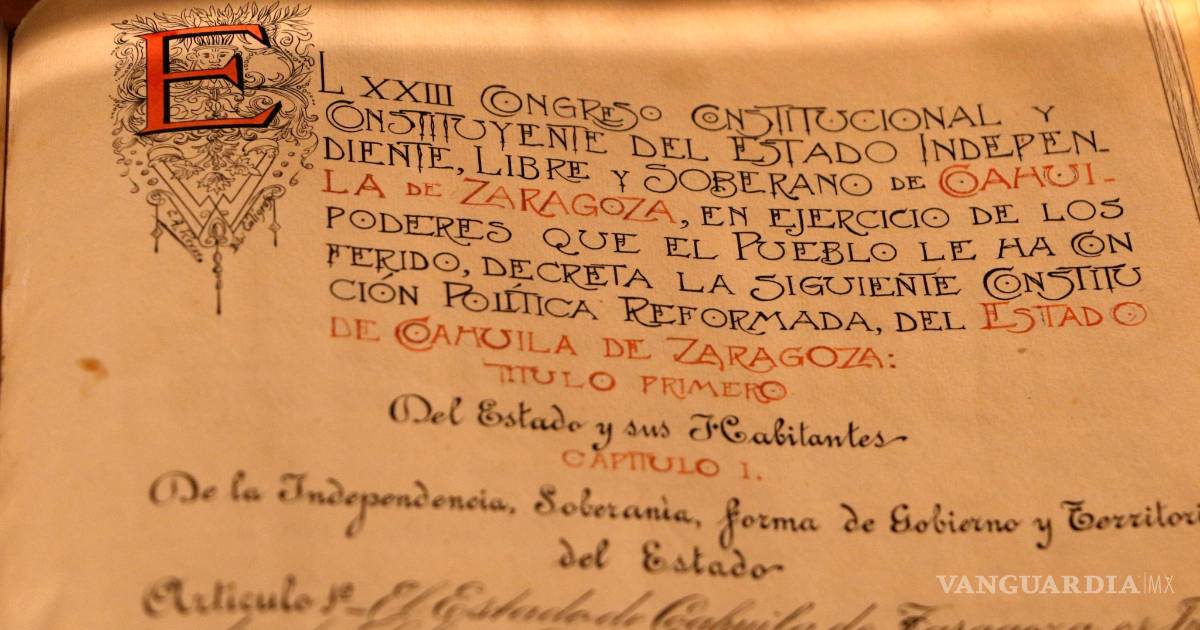 EL XXIII CONGRESO CONSTITUCIONAL Y
CONSTITUYENTE DEL ESTADO INDEPEN-
DIENTE, LIBRE Y SOBERANO DE COAHUI-
LA DE ZARAGOZA, EN EJERCICIO DE LOS
PODERES QUE EL PUEBLO LE HA CON
FERIDO, DECRETA LA SIGUIENTE CONSTITU
CIÓN POLÍTICA REFORMADA, DEL ESTADO
DE COAHUILA DE ZARAGOZA:
TITULO PRIMERO
Del Estado y sus Habitantes
CAPITULO I.
De la Independencia, Soberanìa, forma de Gobierno y Territori
del Estado
Articulo 1º El Estado de Coahuila de Zaragoza es
VANGUARDIA|MX